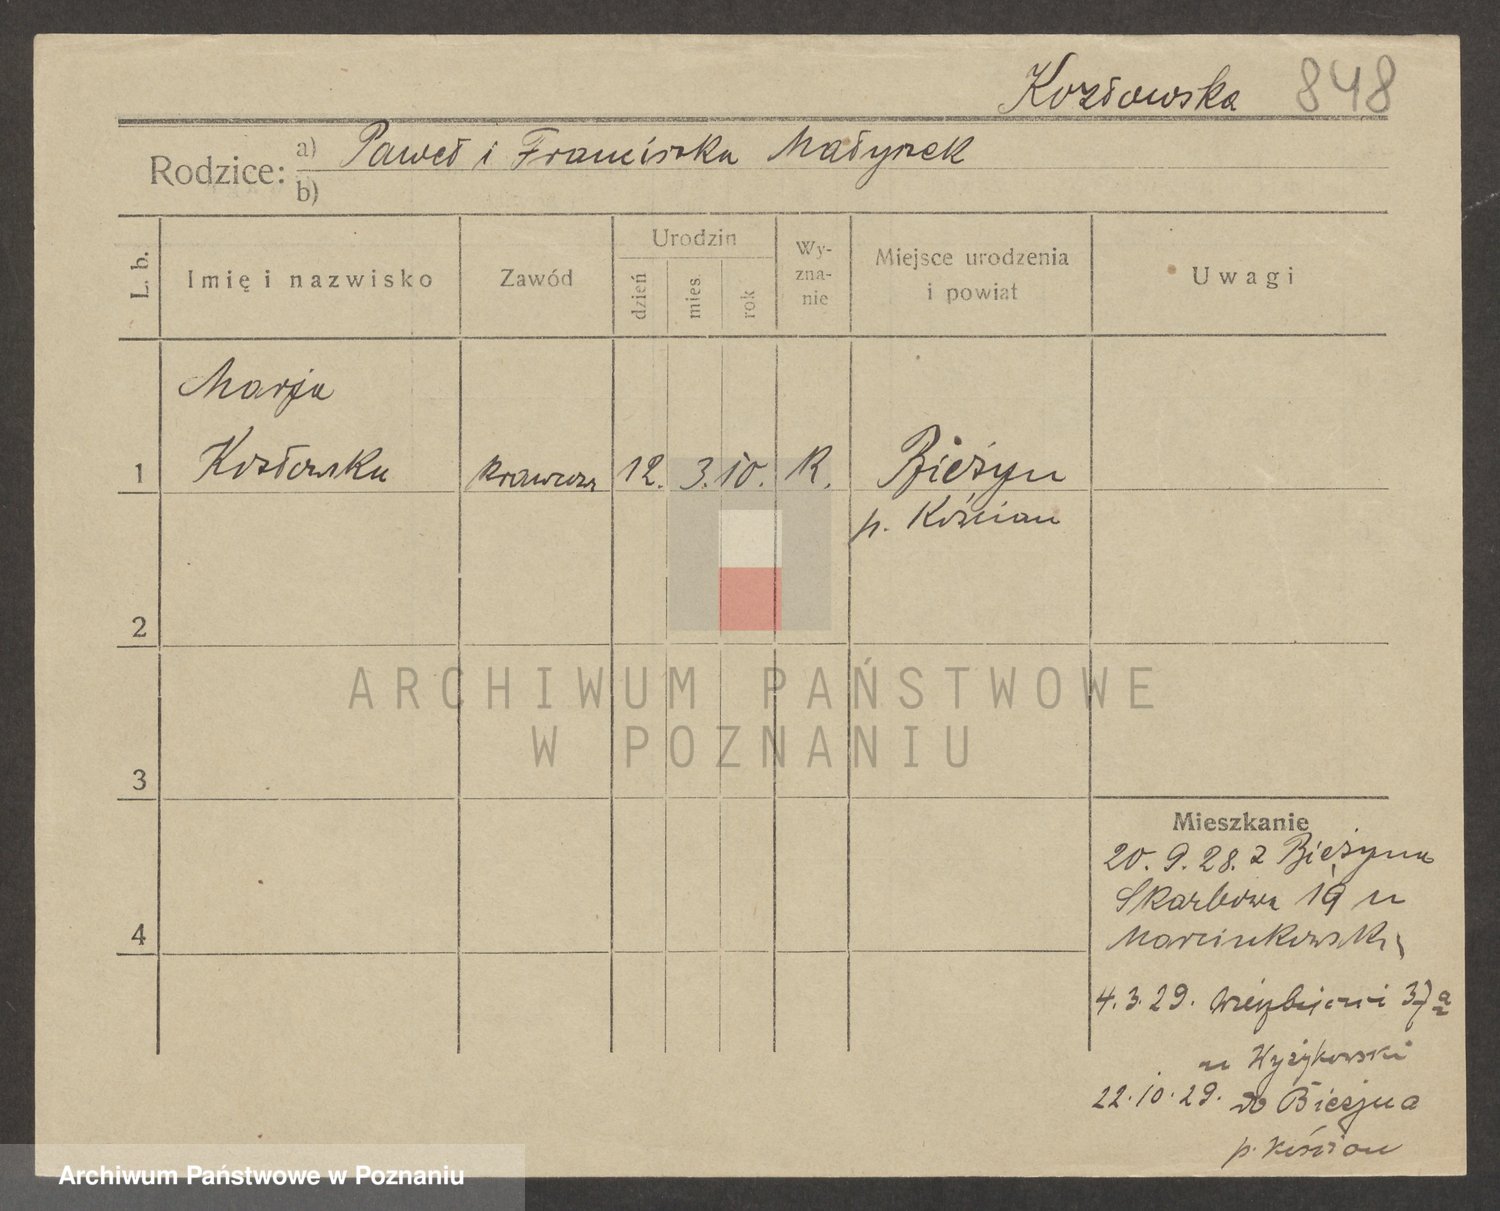 Kozłowska 848
Rodzice: a) Paweł i Franciszka Małyszek
b)
L. b.
Imię i nazwisko
Zawód
Urodzin
dzień
mies.
rok
Wy-
zna-
nie
Miejsce urodzenia
i powiat
Uwagi
Marja
1 Kozłowska krawcowa 12. 3. 10. K. Bieżyn
p. Kościan
2
ARCHIWUM PAŃSTWOWE
W POZNANIU
3
Mieszkanie
20. 9. 28. z Bieżyna
Skarbowa 19 u
4 Marcinkowski
4. 3. 29. 37a
u Wyżykowski
22. 10. 29. do Bieżyna
p. Kościan
Archiwum Państwowe w Poznaniu